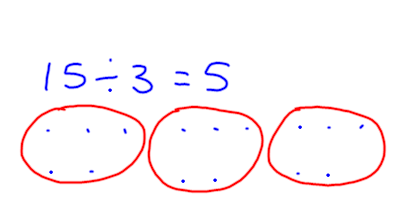 15÷3=5